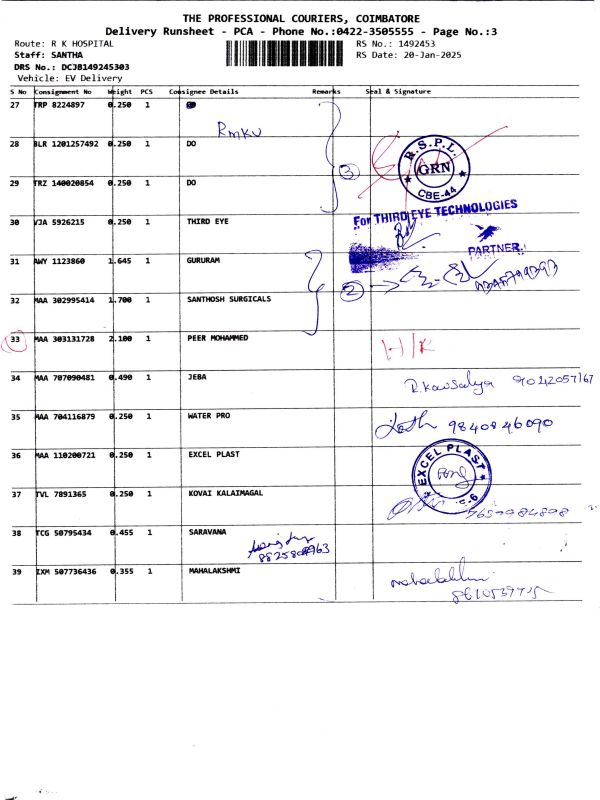 THE PROFESSIONAL COURIERS, COIMBATORE
Delivery Runsheet - PCA - Phone No.:0422-3505555 - Page No.:3
Route: R K HOSPITAL
RS No.: 1492453
Staff: SANTHA
RS Date: 20-Jan-2025
DRS No.: DCJB149245303
Vehicle: EV Delivery
S No Consignment No Weight PCS Consignee Details Remarks Seal & Signature
27 TRP 8224897 0.250 1
RMKV
28 BLR 1201257492 0.250 1 DO
R.S.P.L.
GRN
CBE-44
29 TRZ 140020854 0.250 1 DO
3
30 VJA 5926215 0.250 1 THIRD EYE
For THIRD EYE TECHNOLOGIES
PARTNER
31 AWY 1123860 1.645 1 GURURAM
2
32 MAA 302995414 1.700 1 SANTHOSH SURGICALS
33 MAA 303131728 2.100 1 PEER MOHAMMED H/K
34 MAA 707090481 0.490 1 JEBA R.Kowsalya 9042057167
35 MAA 704116879 0.250 1 WATER PRO 9840846090
36 MAA 110200721 0.250 1 EXCEL PLAST
EXCEL PLAST
37 TVL 7891365 0.250 1 KOVAI KALAIMAGAL
38 TCG 50795434 0.455 1 SARAVANA
39 IXM 507736436 0.355 1 MAHALAKSHMI